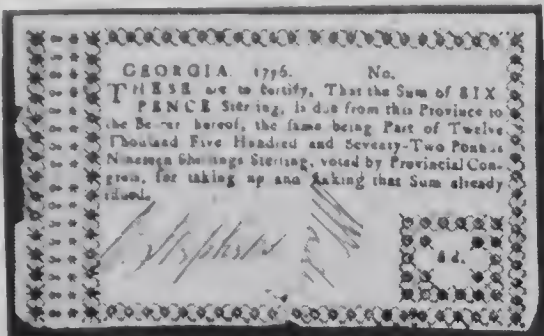 GEORGIA. 1776. No.
THESE are to certify, That the Sum of SIX
PENCE Sterling, is due from this Province to
the Bearer hereof, the same being Part of Twelve
Thousand Five Hundred and Seventy-Two Pounds
Nineteen Shillings Sterling, voted by Provincial Con-
gress, for taking up and sinking that Sum already
issued.
6d.